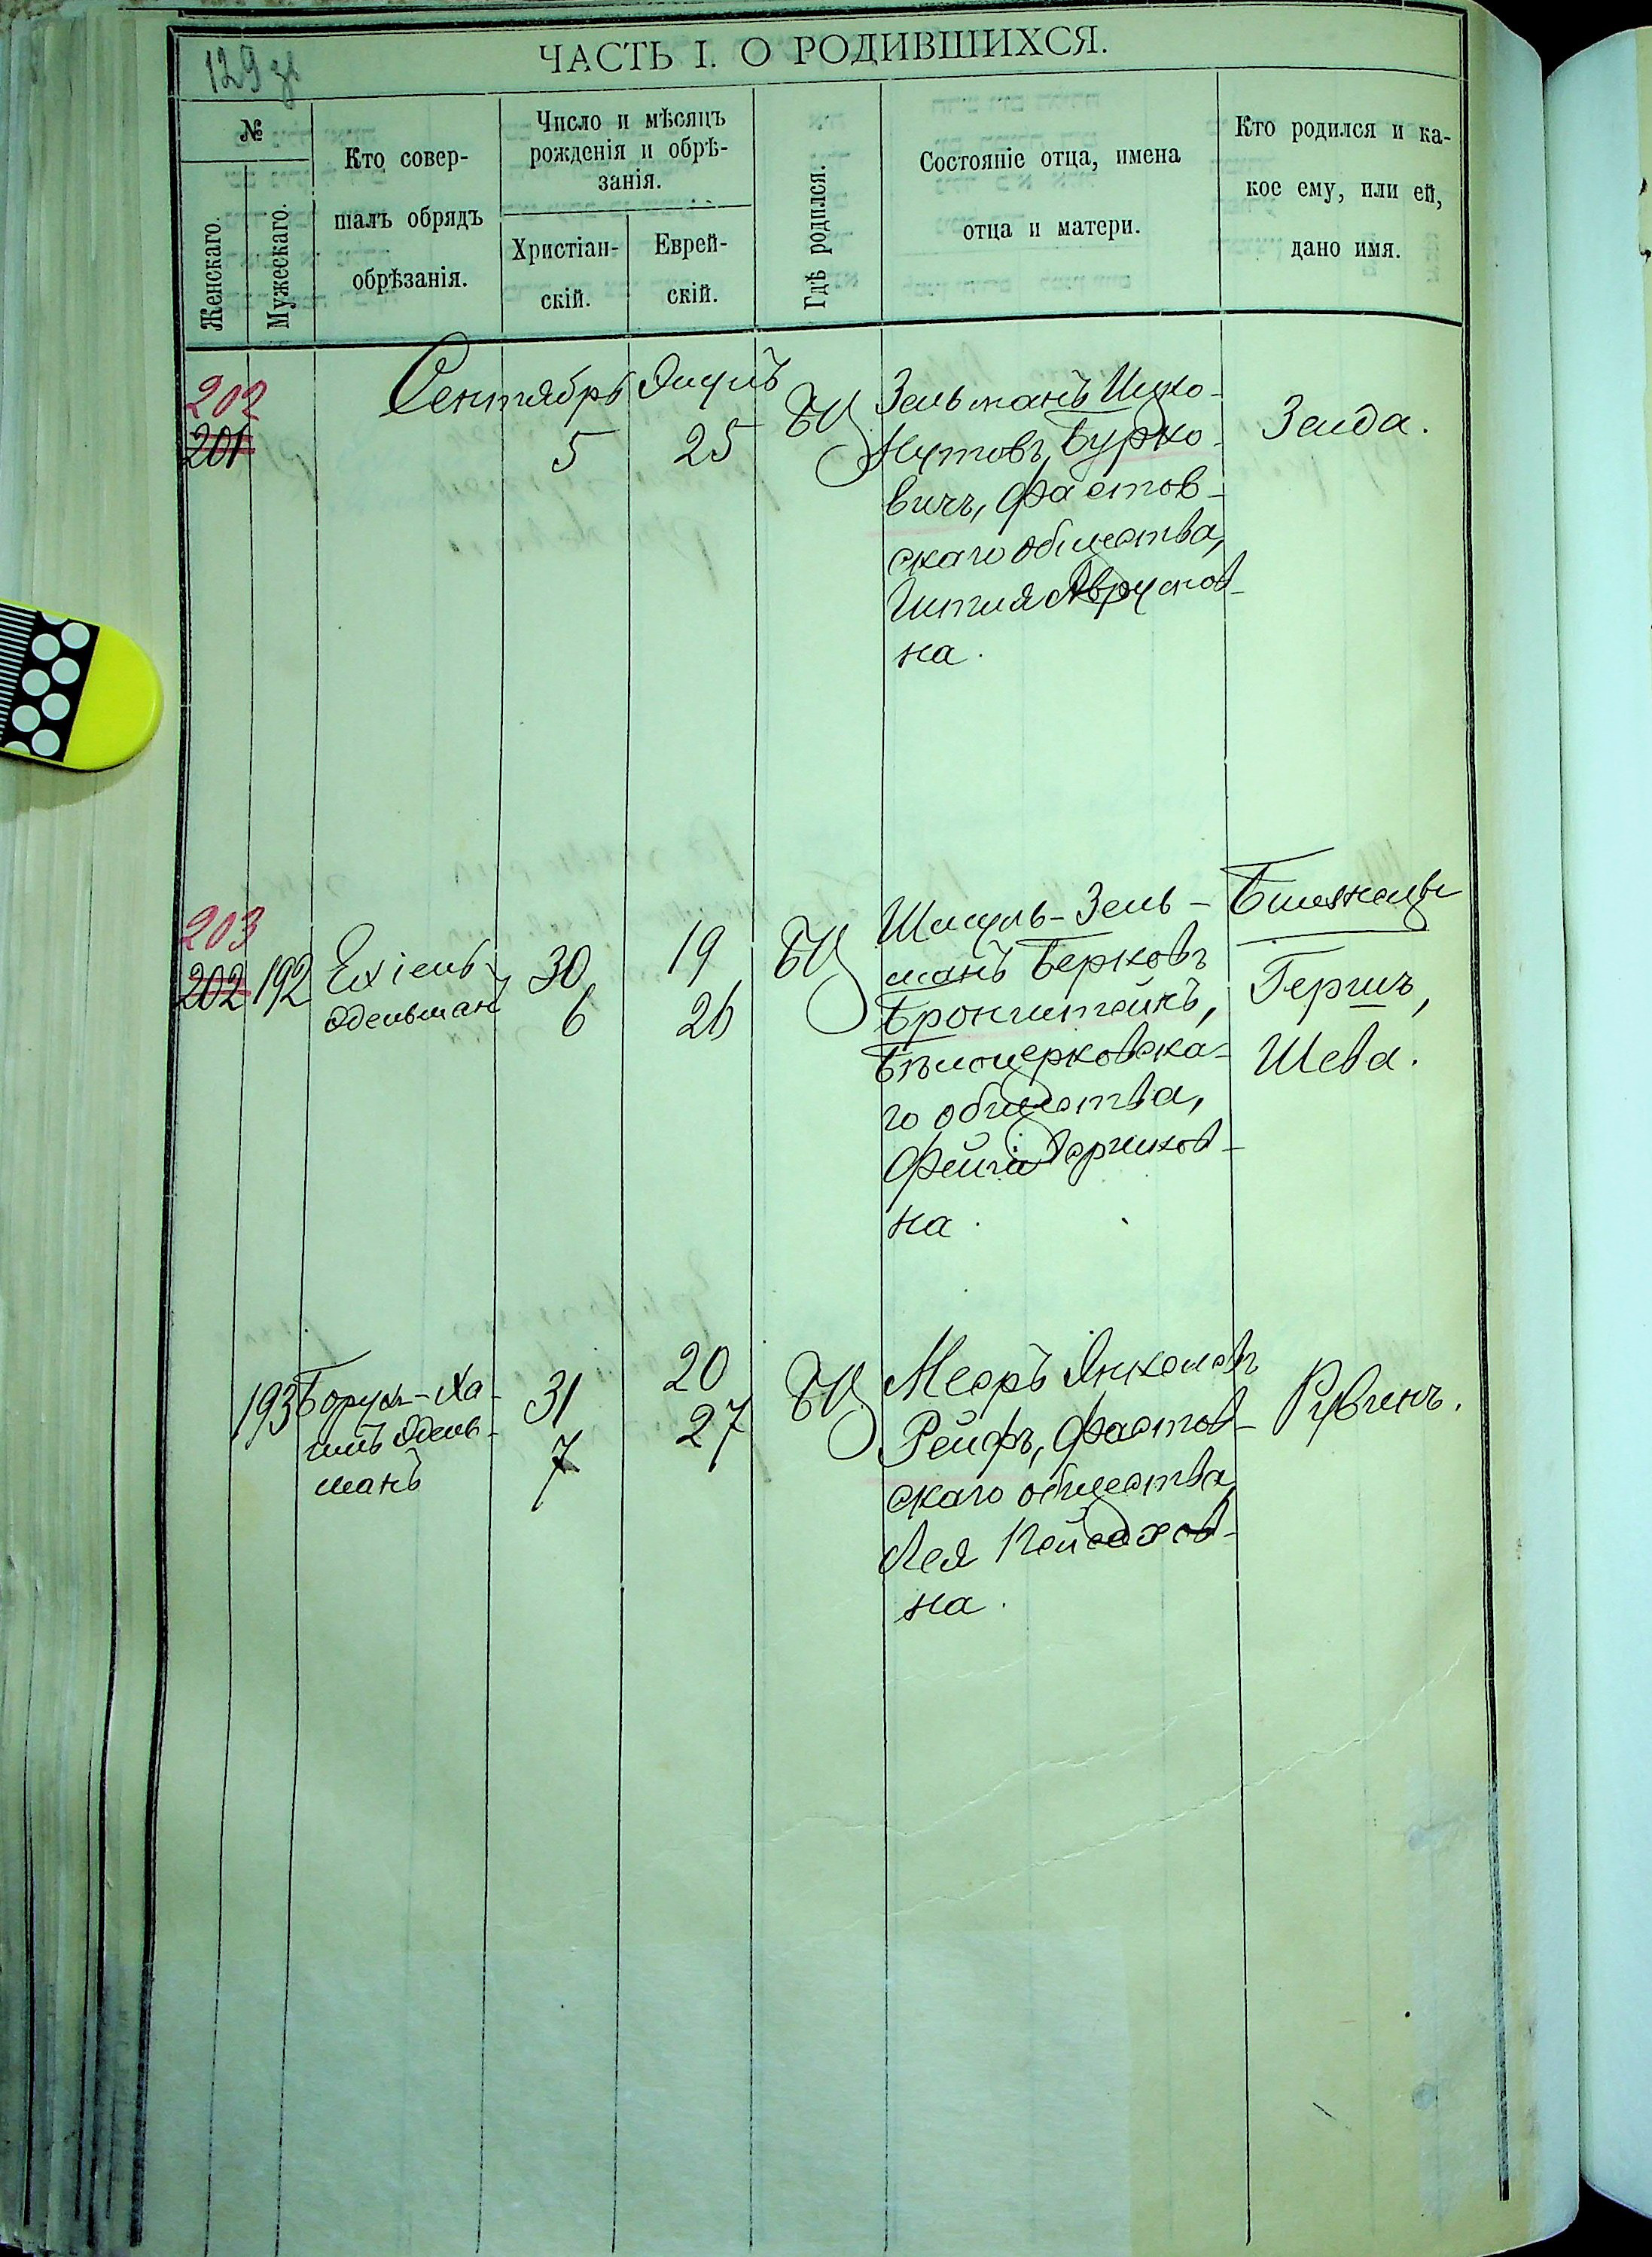 129 об
ЧАСТЬ I. О РОДИВШИХСЯ.
№
Женскаго.
Мужескаго.
Кто совер-
шалъ обрядъ
обрѣзанія.
Число и мѣсяцъ
рожденія и обрѣ-
занія.
Христіан-
скій.
Еврей-
скій.
Гдѣ родился.
Состояніе отца, имена
отца и матери.
Кто родился и ка-
кое ему, или ей,
дано имя.
Сентябрь
202
201
5
25
БЦ
Зельманъ Шико-
Нутовъ Бурко-
вичъ, Фастов-
скаго общества,
на.
Зелда.
203
202
192
Ехіель
Эдельманъ
30
6
19
26
БЦ
Шмуль-Зель-
манъ Берковъ
Бронштейнъ,
Бѣлоцерковска-
го общества,
Фейга Гершков-
на.
Близнецы
Гершъ,
Шева.
193
Борух-Ха-
имъ Эдель-
манъ
31
7
20
27
БЦ
Мееръ Янкелевъ
Рейфъ, Фастов-
скаго общества,
Лея Пейсахов-
на.
Рувинъ.